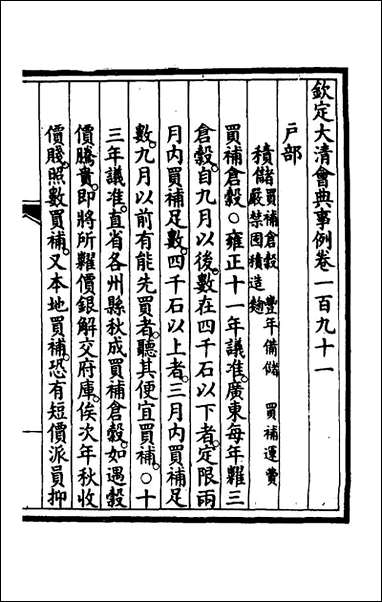 欽定大清會典事例卷一百九十一
戶部
積儲買補倉穀　豐年備儲　買補運費
嚴禁囤積造麴
買補倉穀○雍正十一年議准。廣東每年糶三
倉穀。自九月以後。數在四千石以下者。定限兩
月內買補足數。四千石以上者。三月內買補足
數。九月以前有能先買者。聽其便宜買補。○十
三年議准。直省各州縣秋成買補倉穀。如遇穀
價騰貴。即將所糶價銀解交府庫。俟次年秋收
價賤。照數買補。又本地買補。恐有短價派員抑